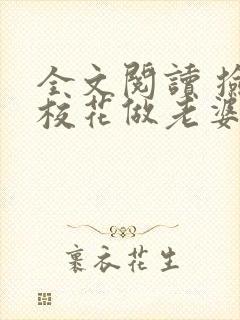 全文閱讀 撿
校花做老婆
裹衣花生